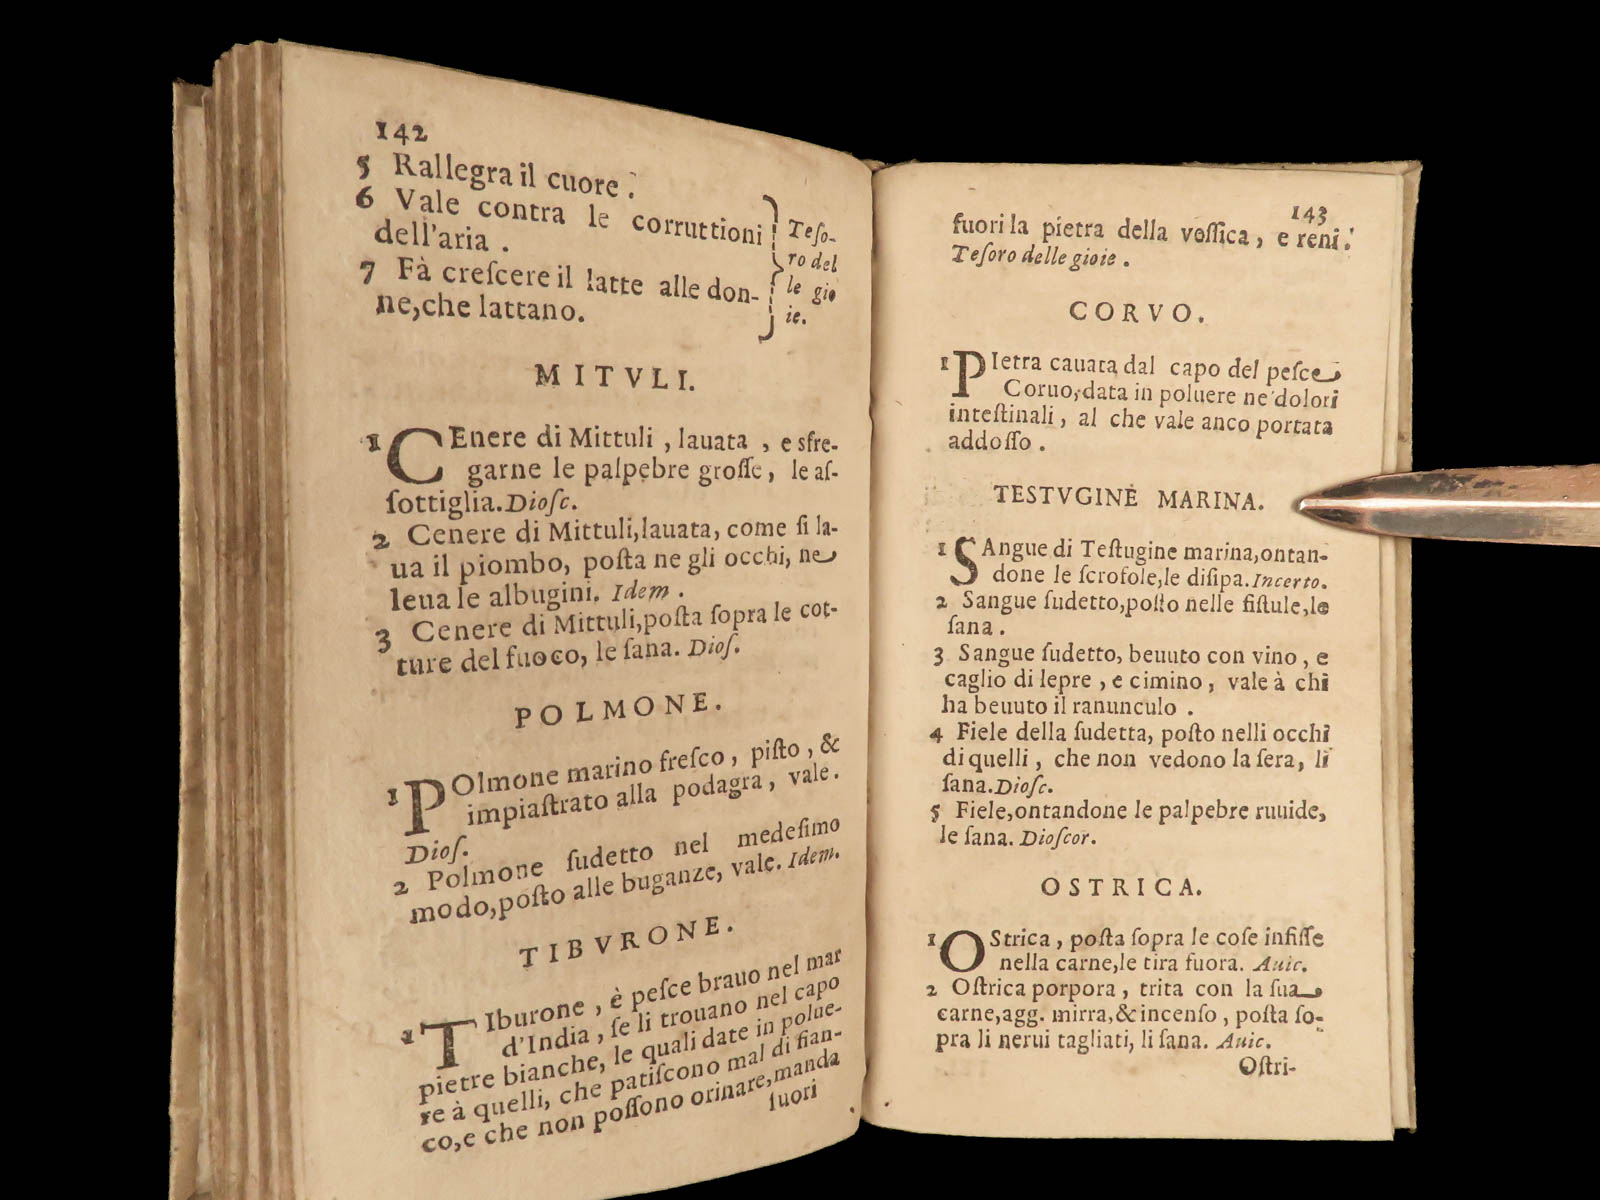 142
5 Rallegra il cuore.
6 Vale contra le corruttioni
dell'aria .
7 Fà creſcere il latte alle don-
ne,che lattano.
Teſo-
ro del
le gio
ie.
MITVLI.
1 CEnere di Mittuli , lauata , e sfre-
garne le palpebre groſſe, le aſ-
ſottiglia. Dioſc.
2 Cenere di Mittuli,lauata, come ſi la-
ua il piombo, poſta ne gli occhi, ne
leua le albugini. Idem .
3 Cenere di Mittuli,poſta ſopra le cot-
ture del fuoco, le ſana. Dioſ.
POLMONE.
1 POlmone marino freſco , piſto , &
impiaſtrato alla podagra , vale.
Dioſ.
2 Polmone ſudetto nel medeſimo
modo,poſto alle buganze, vale. Idem.
TIBVRONE.
1 TIburone , è peſce brauo nel mar
d'India , ſe li trouano nel capo
pietre bianche, le quali date in polue-
re à quelli, che patiſcono mal di fian-
co,e che non poſſono orinare,manda
fuori
143
fuori la pietra della veſſica , e reni.
Teſoro delle gioie .
CORVO.
1 PIetra cauata dal capo del peſce
Coruo,data in poluere ne' dolori
inteſtinali , al che vale anco portata
addoſſo .
TESTVGINE MARINA.
1 SAngue di Teſtugine marina,ontan-
done le ſcrofole,le diſipa. Incerto.
2 Sangue ſudetto,poſto nelle fiſtule,le
ſana .
3 Sangue ſudetto, beuuto con vino , e
caglio di lepre , e cimino , vale à chi
ha beuuto il ranunculo .
4 Fiele della ſudetta, poſto nelli occhi
di quelli , che non vedono la ſera, li
ſana. Dioſc.
5 Fiele,ontandone le palpebre ruuide,
le ſana. Dioſcor.
OSTRICA.
1 OStrica , poſta ſopra le coſe infiſſe
nella carne,le tira fuora. Auic.
2 Oſtrica porpora , trita con la ſua
carne,agg. mirra,& incenſo , poſta ſo-
pra li nerui tagliati, li ſana. Auic.
Oſtri-